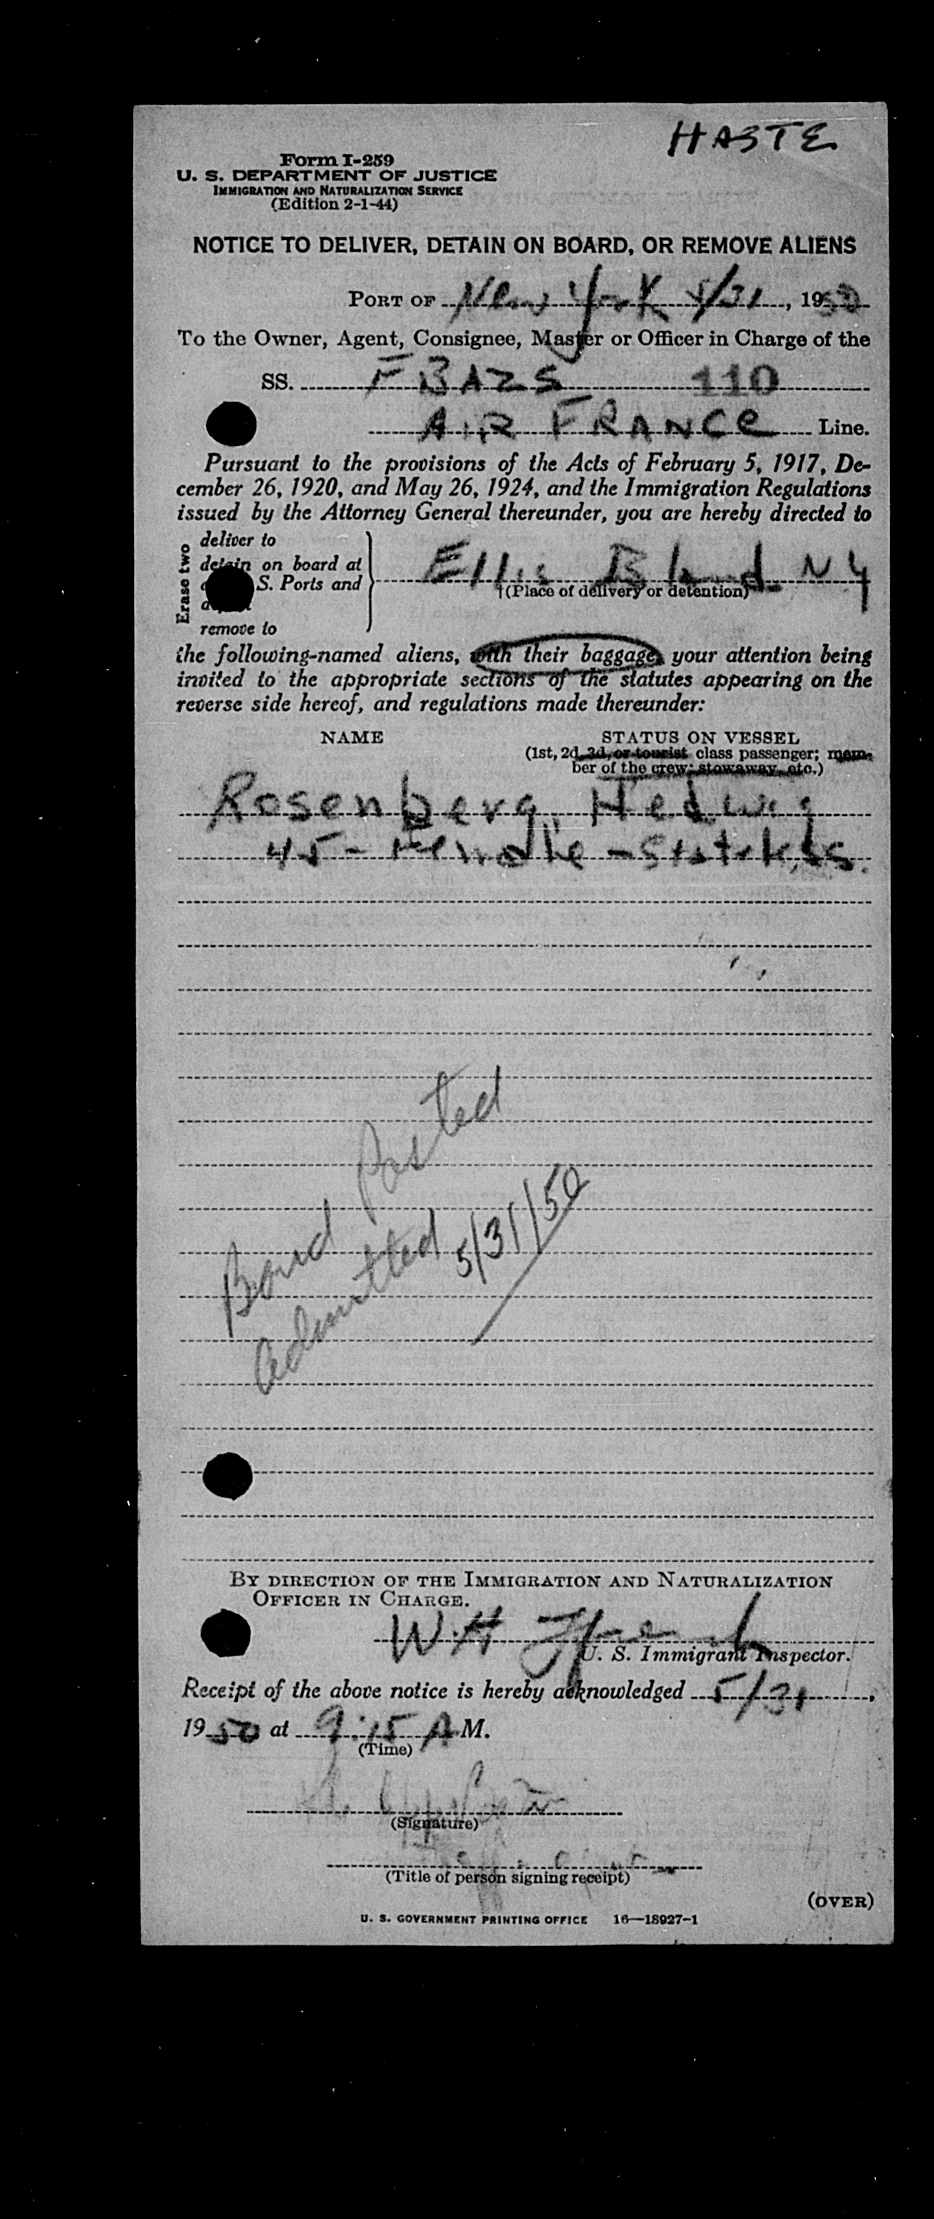 HASTE
Form I-259
U. S. DEPARTMENT OF JUSTICE
IMMIGRATION AND NATURALIZATION SERVICE
(Edition 2-1-44)
NOTICE TO DELIVER, DETAIN ON BOARD, OR REMOVE ALIENS
PORT OF New York 5/31, 1950
To the Owner, Agent, Consignee, Master or Officer in Charge of the
SS. FBAZS 110
AIR FRANCE Line.
Pursuant to the provisions of the Acts of February 5, 1917, De-
cember 26, 1920, and May 26, 1924, and the Immigration Regulations
issued by the Attorney General thereunder, you are hereby directed to
Erase two
deliver to
detain on board at
S. Ports and
remove to
Ellis Island NY
(Place of delivery or detention)
the following-named aliens, with their baggage, your attention being
invited to the appropriate sections of the statutes appearing on the
reverse side hereof, and regulations made thereunder:
NAME STATUS ON VESSEL
(1st, 2d, 3d, or tourist class passenger; mem-
ber of the crew; stowaway, etc.)
Rosenberg, Hedwig
45 - Female - Stateless.
Bond Posted
admitted 5/31/50
BY DIRECTION OF THE IMMIGRATION AND NATURALIZATION
OFFICER IN CHARGE.
W H
U. S. Immigrant Inspector.
Receipt of the above notice is hereby acknowledged 5/31,
1950 at 9:15 A M.
(Time)
(Signature)
(Title of person signing receipt)
(OVER)
U. S. GOVERNMENT PRINTING OFFICE 16—18927-1